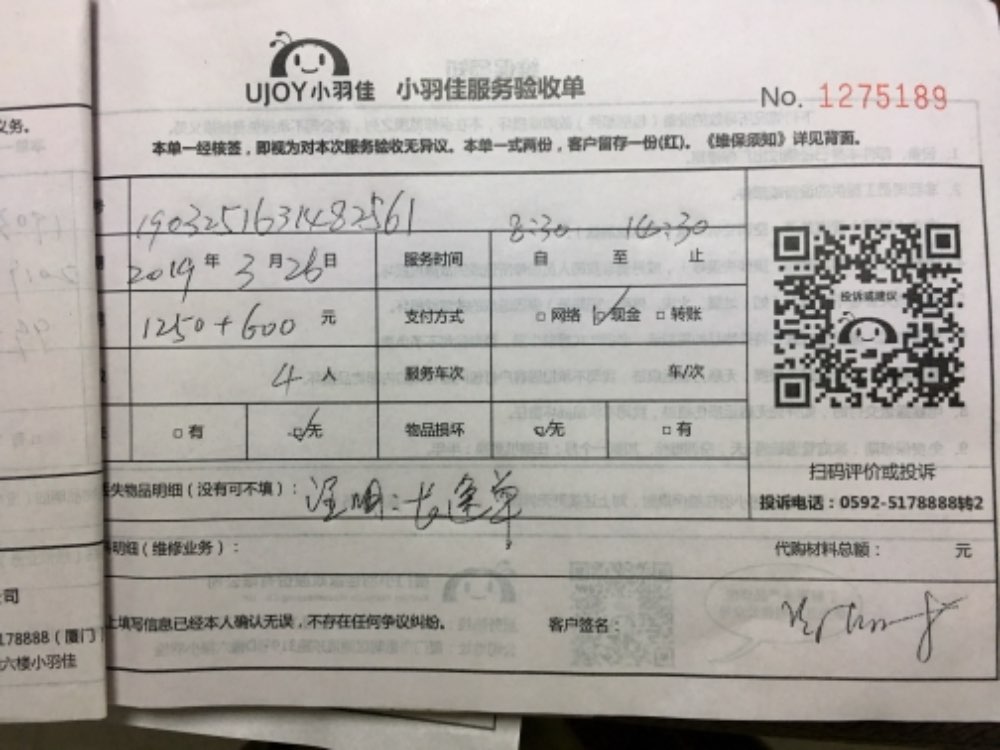 UJOY小羽佳 小羽佳服务验收单
No. 1275189
义务。
本单一经核签，即视为对本次服务验收无异议。本单一式两份，客户留存一份(红)。《维保须知》详见背面。
1903251631482561
8:30 14:30
2019 年 3 月 26 日 服务时间 自 至 止
1250+600 元 支付方式 □网络 ☑现金 □转账
投诉或建议
4 人 服务车次 车/次
□有 ☑无 物品损坏 ☑无 □有
扫码评价或投诉
失物品明细（没有可不填）：注明：长途单
投诉电话：0592-5178888转2
明细（维修业务）： 代购材料总额： 元
公司
上填写信息已经本人确认无误，不存在任何争议纠纷。 客户签名：
5178888（厦门）
六楼小羽佳